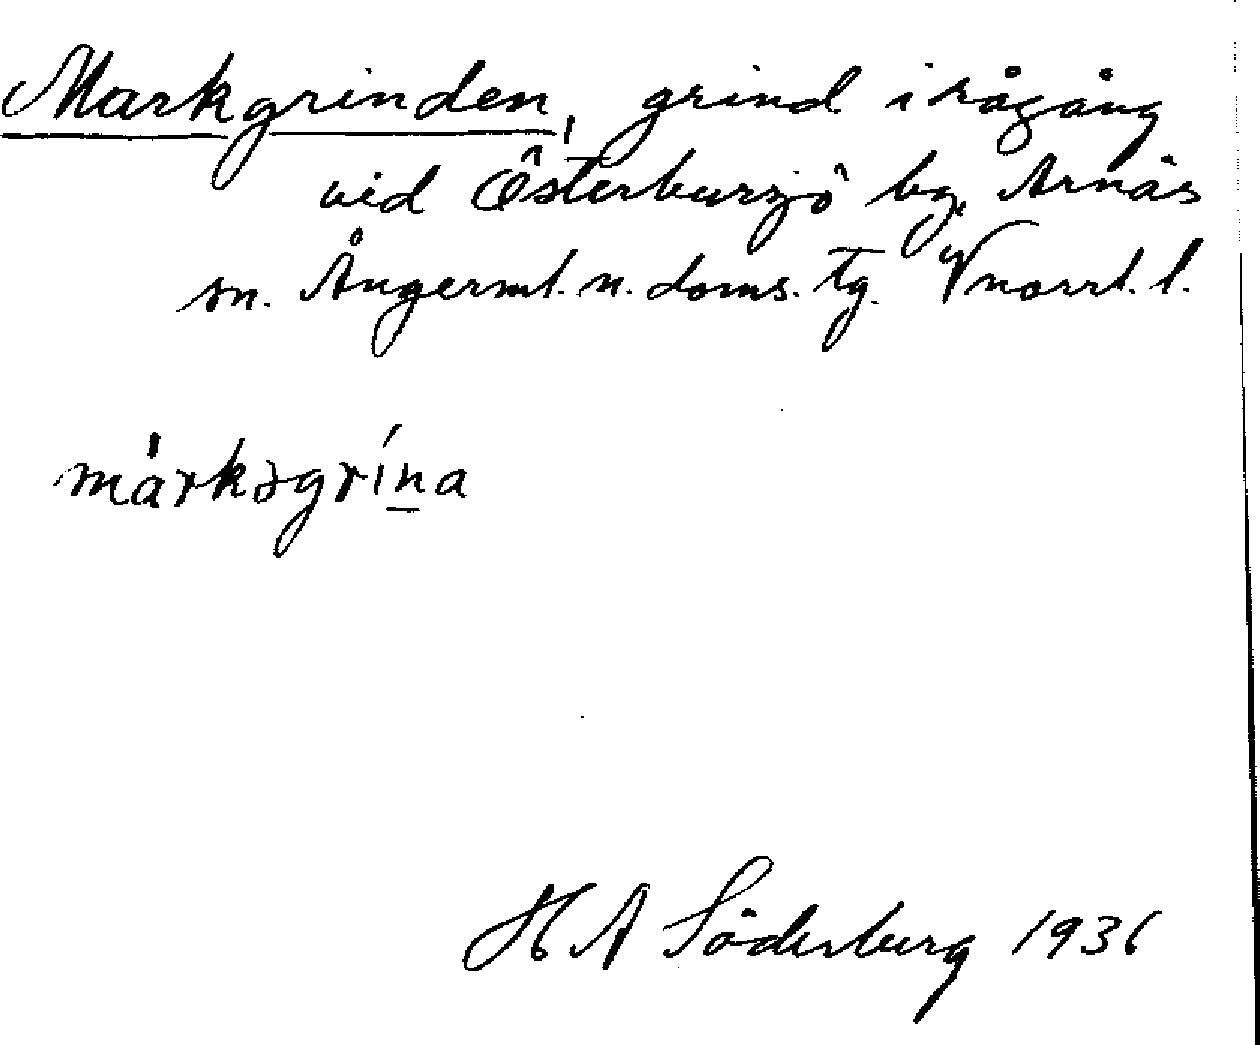 Markgrinden, grind i rågång
vid Österbursjö by, Arnäs
sn. Ångerml. n. doms. tg. Vnorrl. l.
màrkəgrína
H A Söderberg 1936